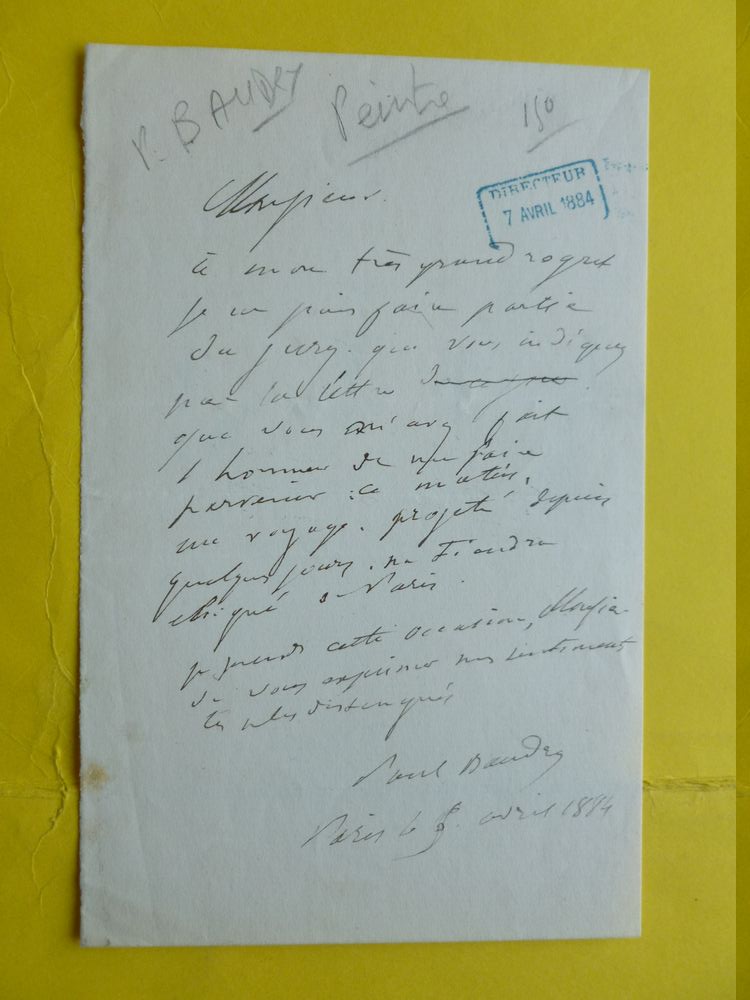 P. BAUDRY Peintre 150
DIRECTEUR
7 AVRIL 1884
Monsieur.
à mon très grand regret
je ne puis faire partie
du jury. que vous indiquez
par la lettre
que vous m'avez fait
l'honneur de me faire
parvenir ce matin,
un voyage. projeté depuis
quelques jours. me tiendra
éloigné de Paris.
je prends cette occasion, Monsieur
de vous exprimer mes sentiments
les plus distingués
Paul Baudry
Paris le avril 1884